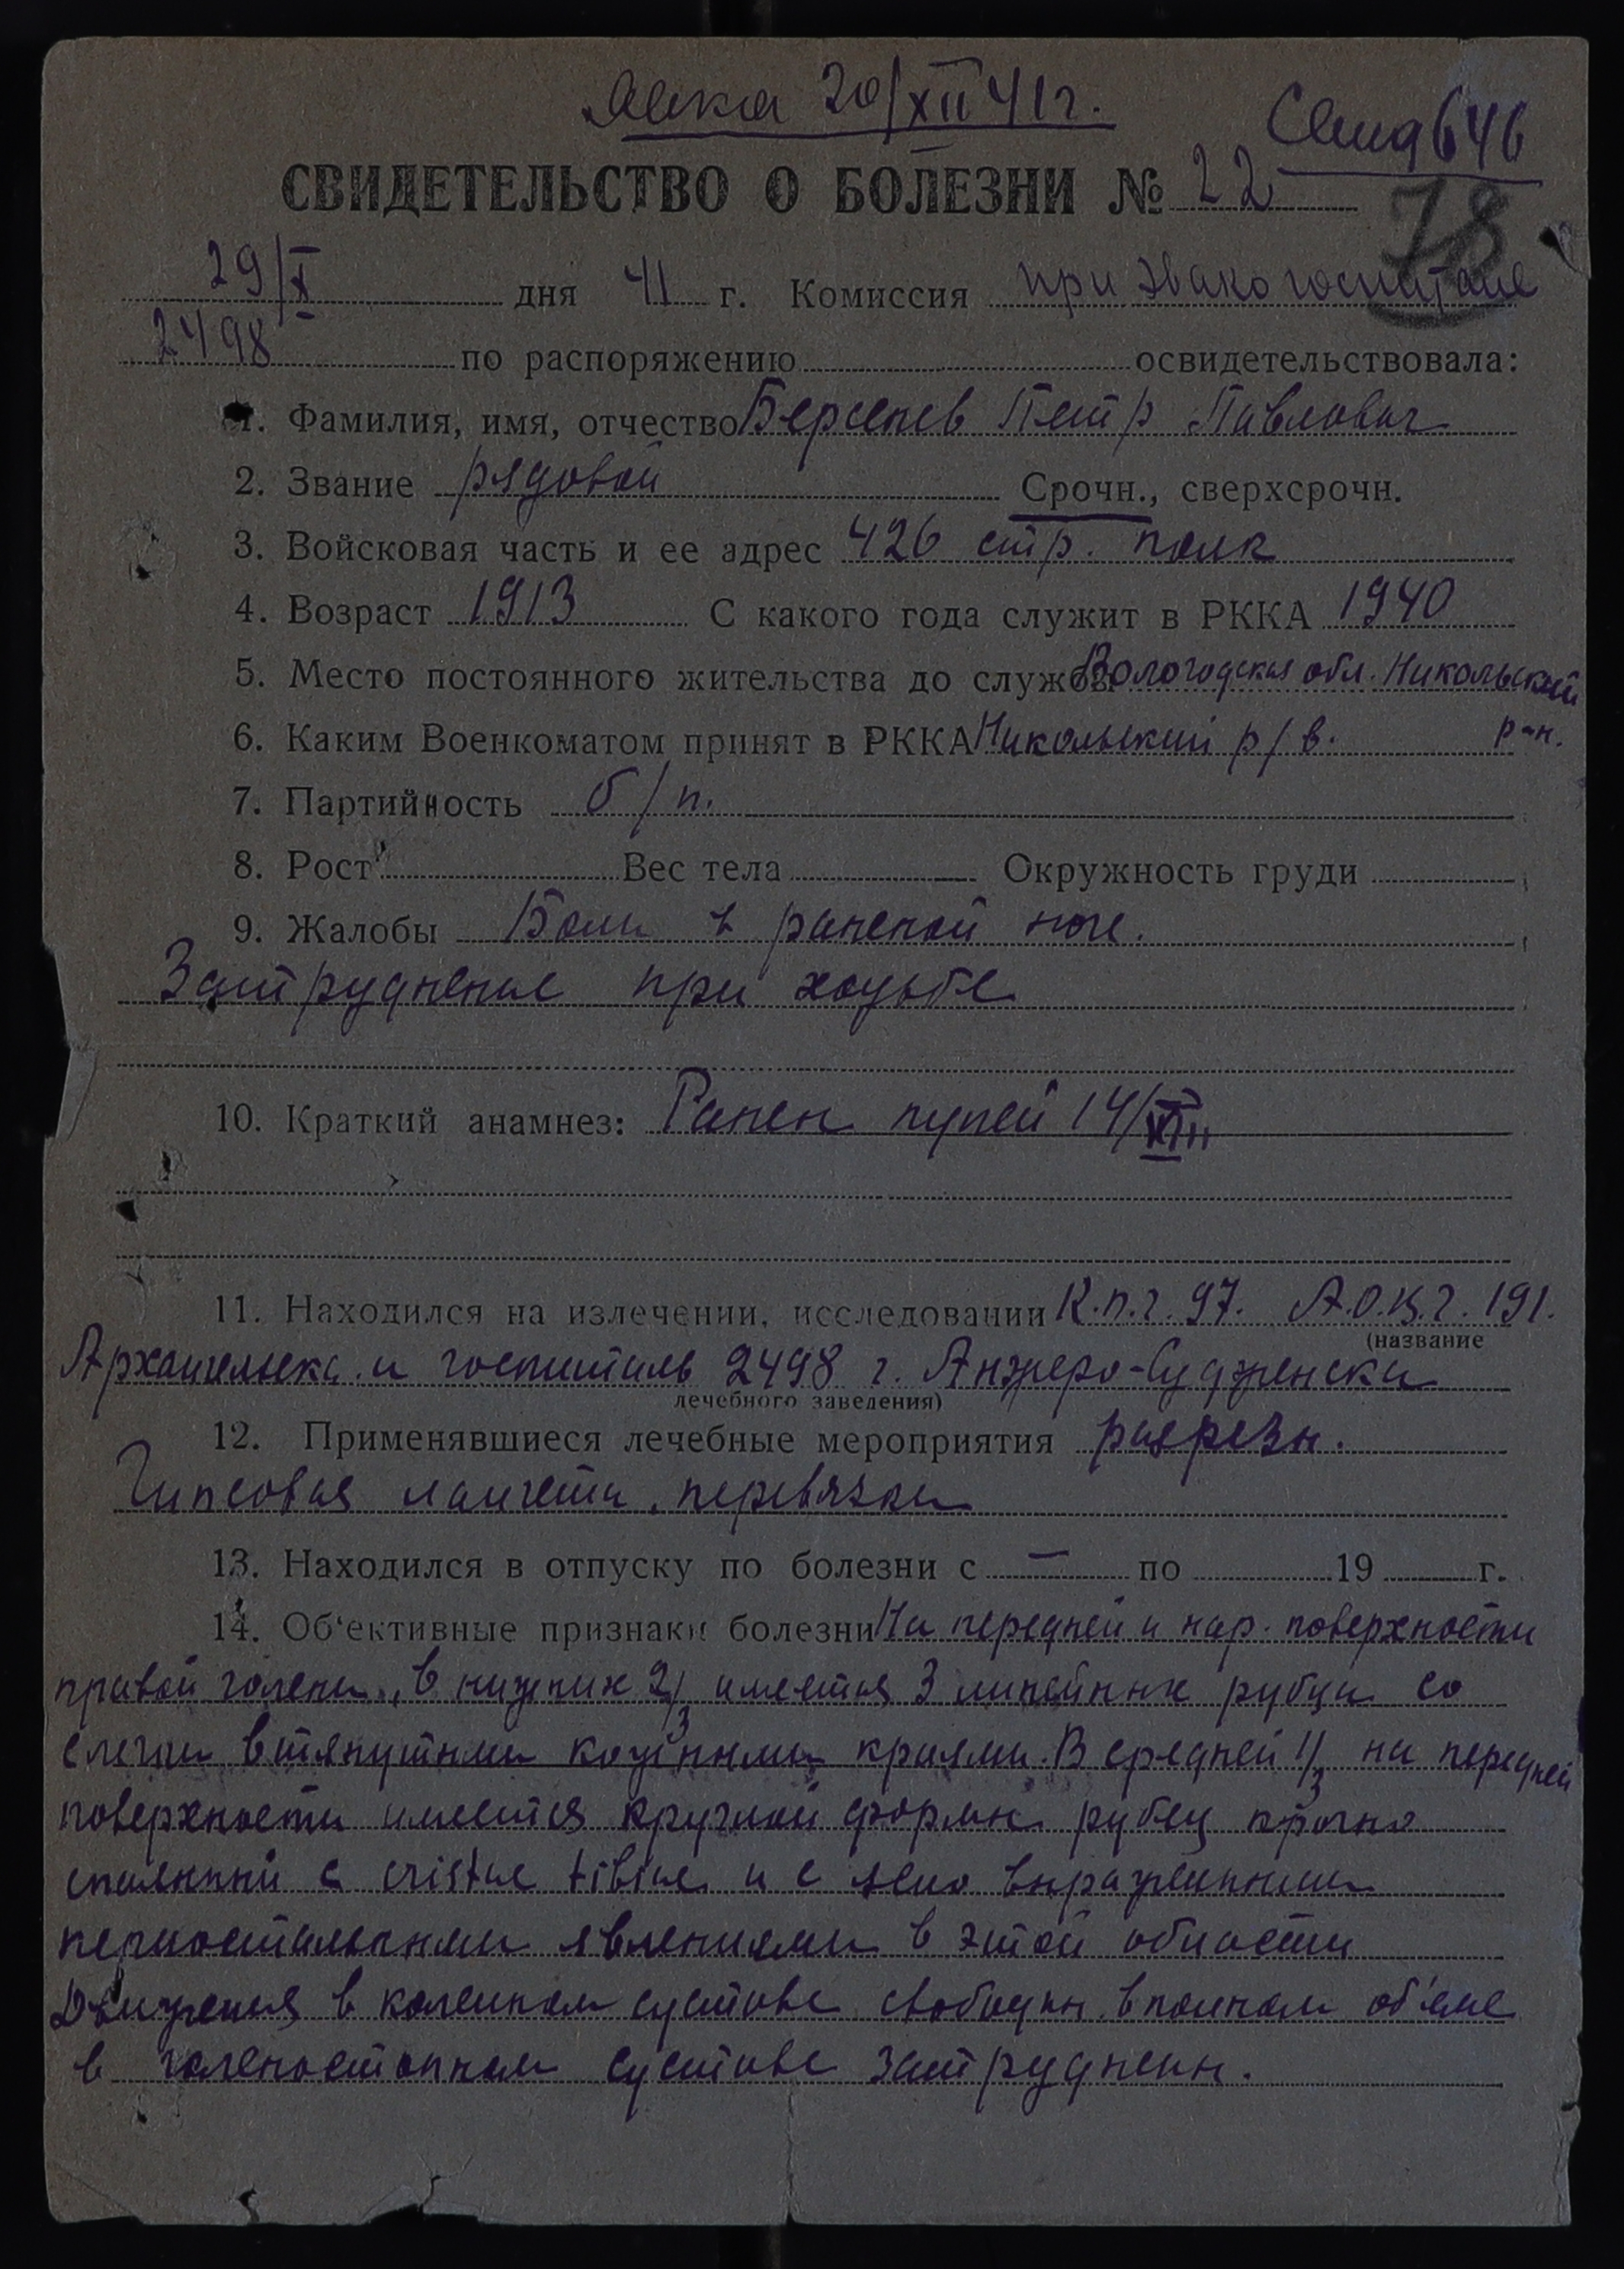 Явка 20/XII 41 г.
646
СВИДЕТЕЛЬСТВО О БОЛЕЗНИ № 22
78
29/X дня 41 г. Комиссия при эвакогоспитале
2498 по распоряжению освидетельствовала:
1. Фамилия, имя, отчество Берсенев Петр Павлович
2. Звание рядовой Срочн., сверхсрочн.
3. Войсковая часть и ее адрес 426 стр. полк
4. Возраст 1913 С какого года служит в РККА 1940
5. Место постоянного жительства до службы Вологодская обл. Никольский
р-н.
6. Каким Военкоматом принят в РККА Никольский р/в.
7. Партийность б/п.
8. Рост Вес тела Окружность груди
9. Жалобы Боли в раненой ноге.
Затруднение при ходьбе
10. Краткий анамнез: Ранен пулей 14/
11. Находился на излечении, исследовании К.п.г. 97. 191.
(название
Архангельска и госпиталь 2498 г. Анжеро-Судженска
лечебного заведения)
12. Применявшиеся лечебные мероприятия разрезы.
Гипсовая лангета, перевязки
13. Находился в отпуску по болезни с — по 19 г.
14. Об'ективные признаки болезни На передней и нар. поверхности
правой голени, в нижних 2/3 имеется 3 линейных рубца со
слегка втянутыми кожными краями. В средней 1/3 на передней
поверхности имеется круглой формы рубец прочно
спаянный с cristae tibiae и с ясно выраженными
периостальными явлениями в этой области
Движения в коленном суставе свободны в полном об'еме
в голеностопном суставе затруднены.